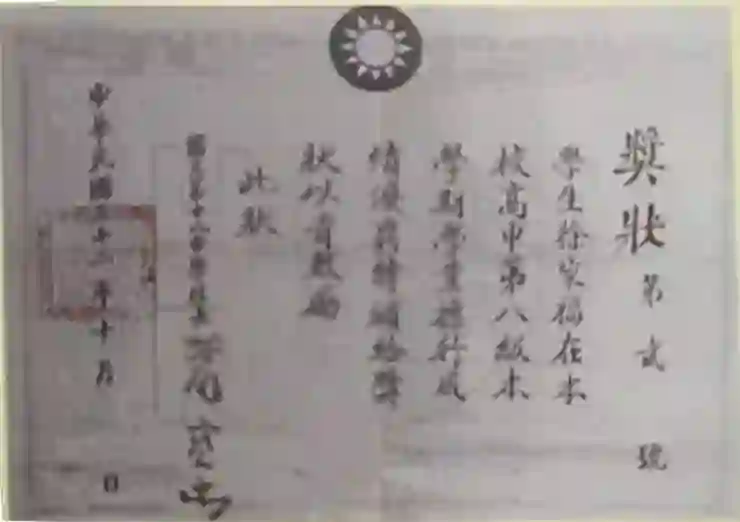 獎狀 第 貳 號
學生徐家福在本
校高中第八級本
學期學業操行成
績優良特頒給獎
狀以資鼓勵
此狀
國立第十六中學校長
中華民國三十二年十月 日